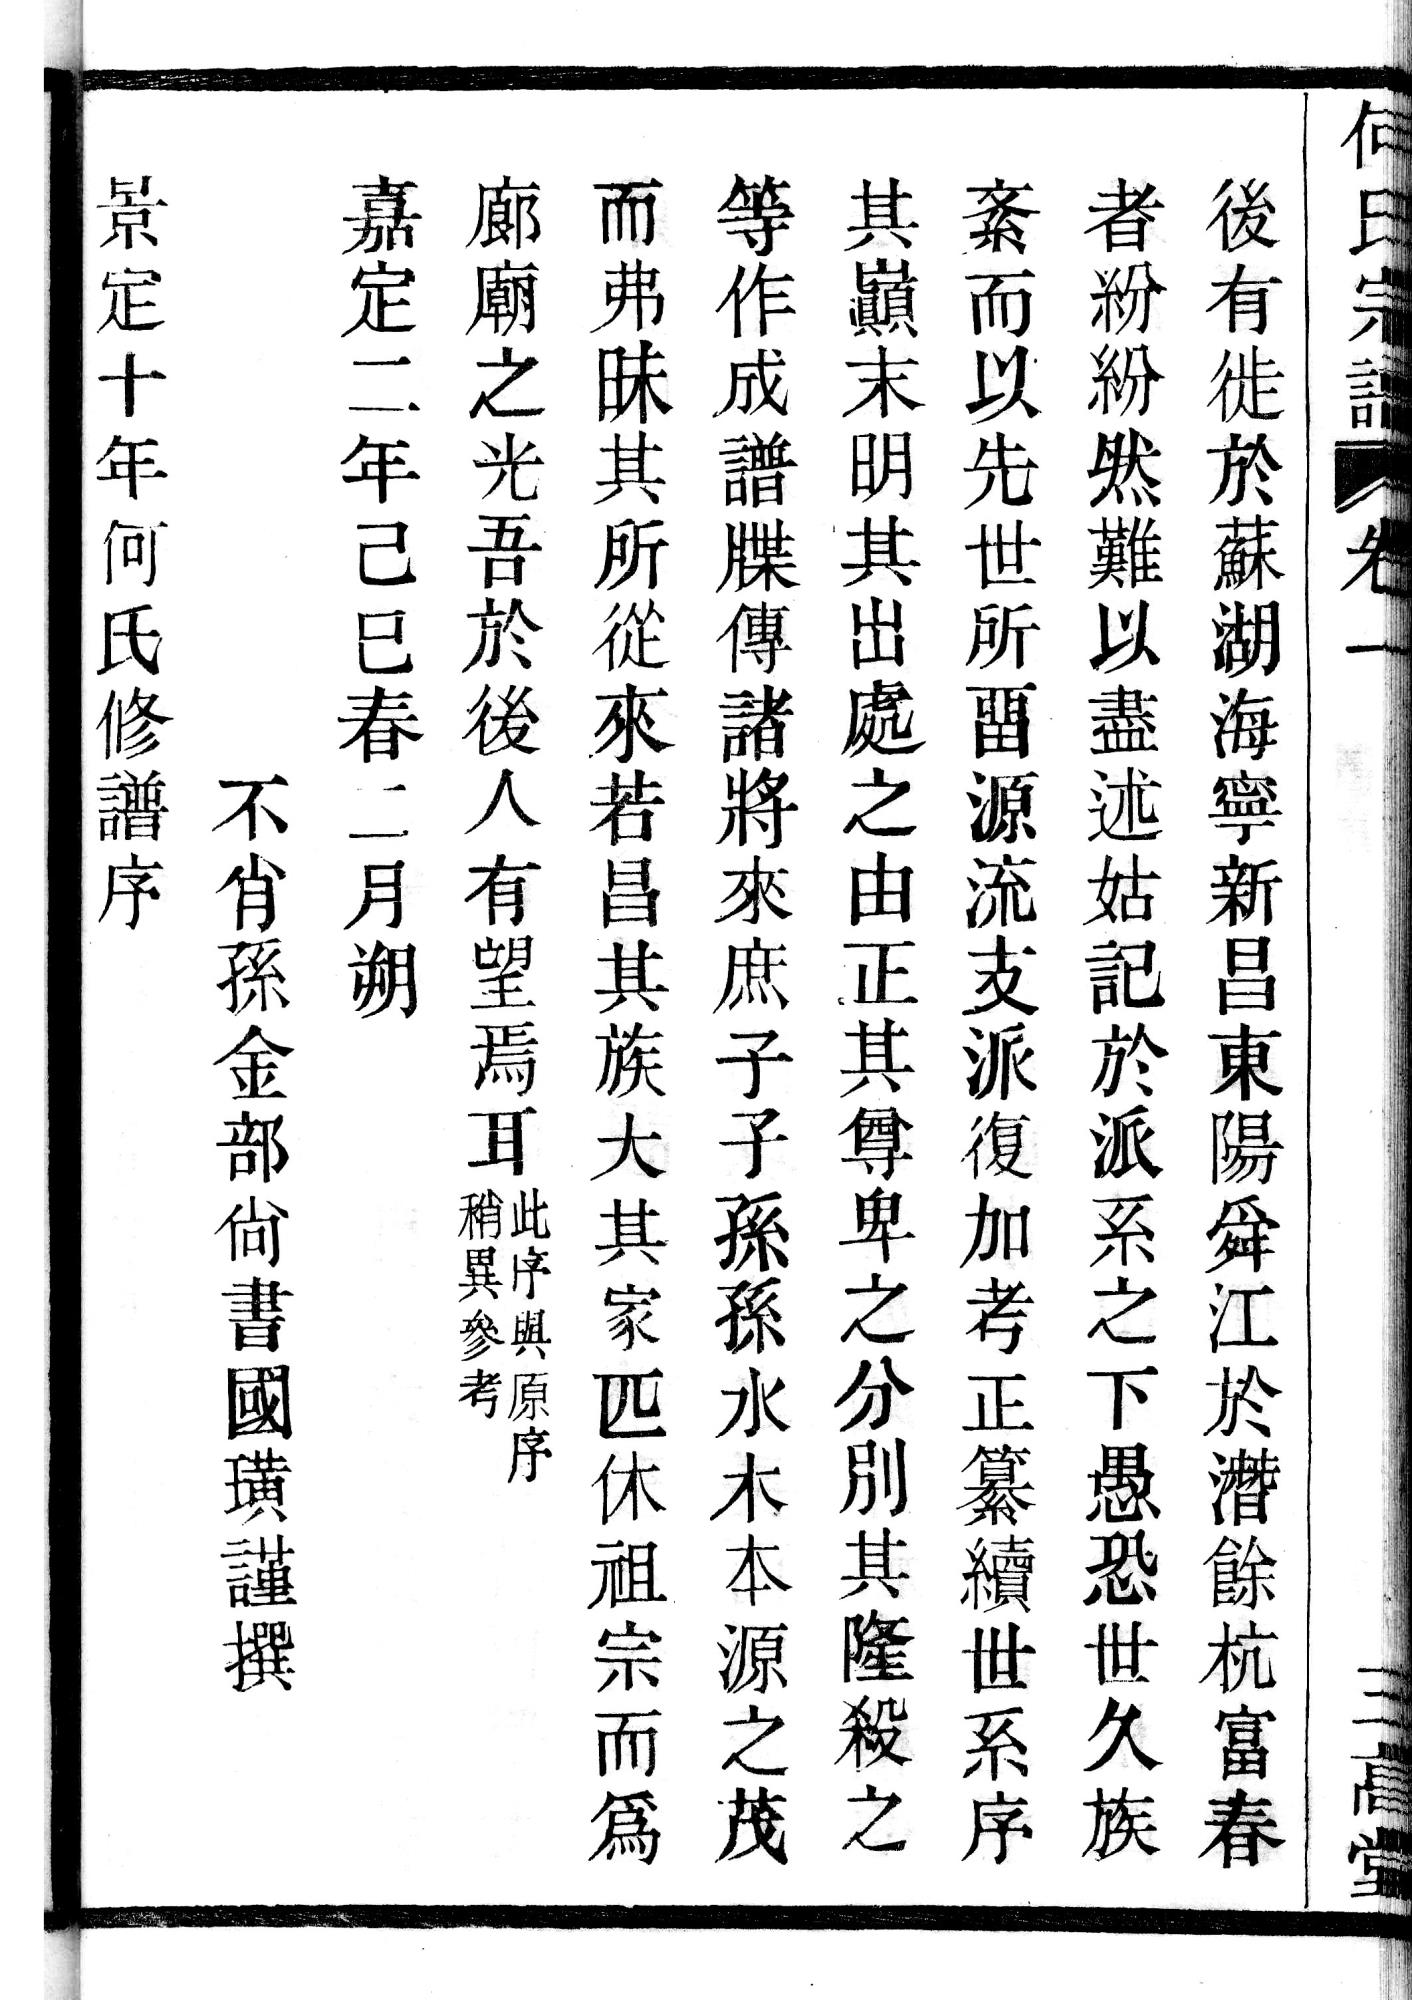 何氏宗譜
卷一
三高堂
後有徙於蘇湖海寧新昌東陽舜江於潛餘杭富春
者紛紛然難以盡述姑記於派系之下愚恐世久族
紊而以先世所畱源流支派復加考正纂續世系序
其巔末明其出處之由正其尊卑之分別其隆殺之
等作成譜牒傳諸將來庶子子孫孫水木本源之茂
而弗昧其所從來若昌其族大其家匹休祖宗而爲
廊廟之光吾於後人有望焉耳此序與原序
稍異參考
嘉定二年己巳春二月朔
不肖孫金部尙書國璜謹撰
景定十年何氏修譜序